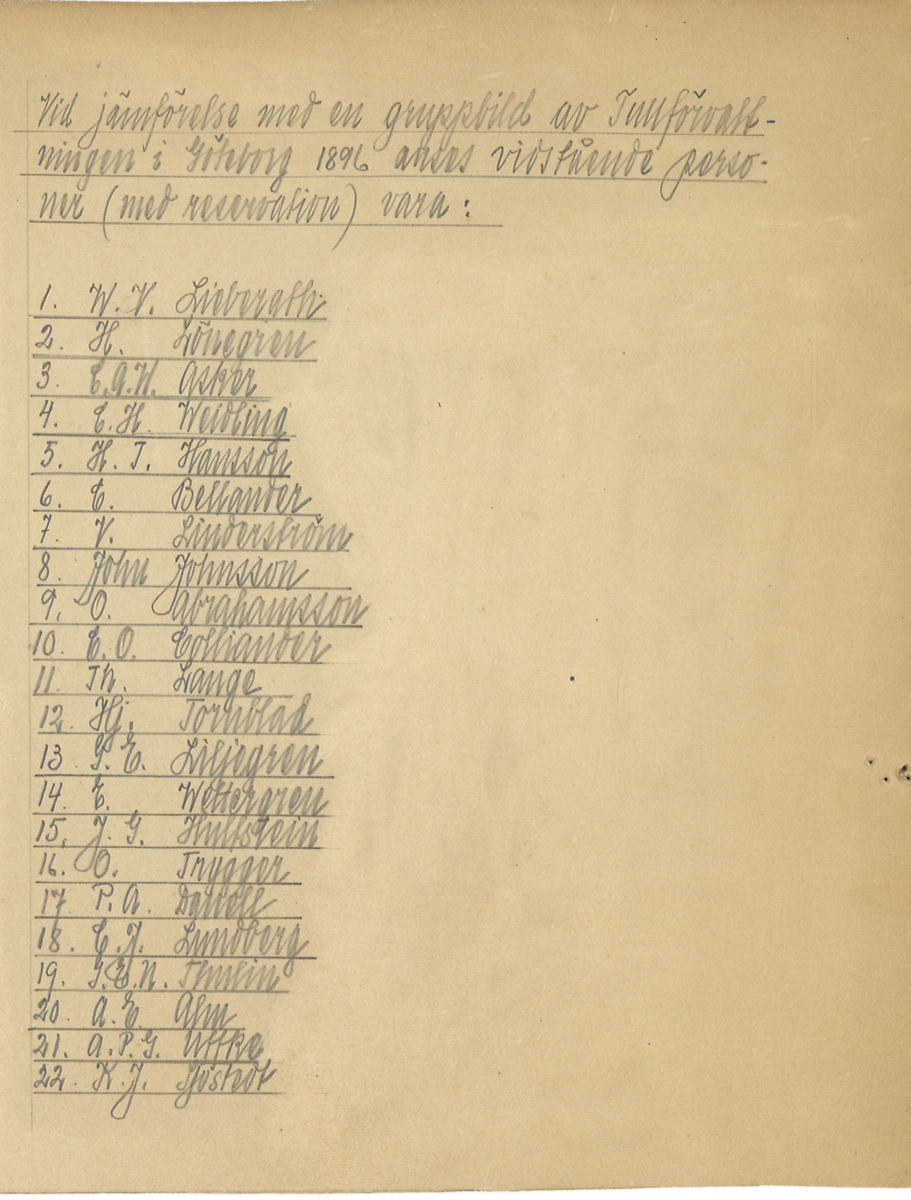 Vid jämförelse med en gruppbild av Tullförvalt-
ningen i Göteborg 1896 anses vidstående perso-
ner (med reservation) vara:
1. W. V. Lieberath
2. H. Lönegren
3. E.A.W. Asker
4. C. H. Weidling
5. H. T. Hansson
6. C. Bellander
7. V. Linderström
8. John Johnsson
9. O. Abrahamsson
10. E. O. Colliander
11. Th. Lange
12. Hj. Tornblad
13 G. E. Liljegren
14. E. Wettergren
15. J. G. Hultstein
16. O. Trygger
17 P. A.
18. C. J. Lundberg
19. G.E.N. Thulin
20. A. E. Alm
21. A. P. G. Uffke
22. K. J. Sjöstedt